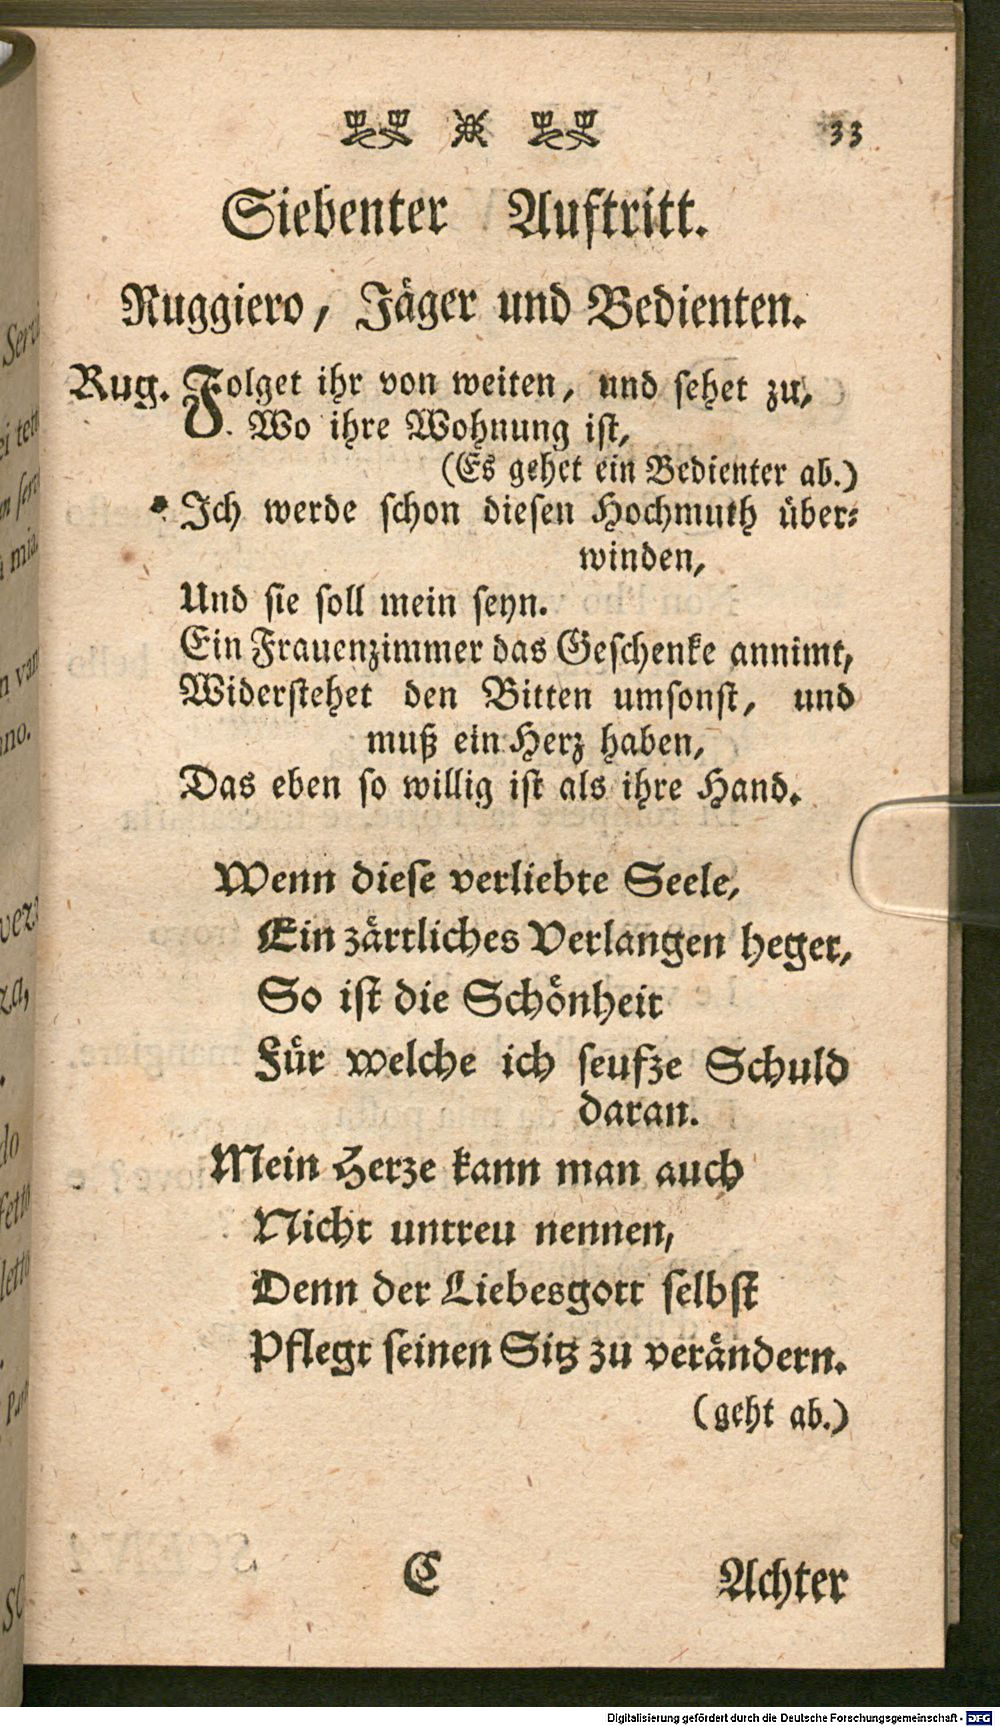 33
Siebenter Auftritt.
Ruggiero, Jäger und Bedienten.
Rug. Folget ihr von weiten, und sehet zu,
Wo ihre Wohnung ist,
(Es gehet ein Bedienter ab.)
Ich werde schon diesen Hochmuth über-
winden,
Und sie soll mein seyn.
Ein Frauenzimmer das Geschenke annimt,
Widerstehet den Bitten umsonst, und
muß ein Herz haben,
Das eben so willig ist als ihre Hand.
Wenn diese verliebte Seele,
Ein zärtliches Verlangen heget,
So ist die Schönheit
Für welche ich seufze Schuld
daran.
Mein Herze kann man auch
Nicht untreu nennen,
Denn der Liebesgott selbst
Pflegt seinen Sitz zu verändern.
(geht ab.)
C Achter
Digitalisierung gefördert durch die Deutsche Forschungsgemeinschaft - DFG